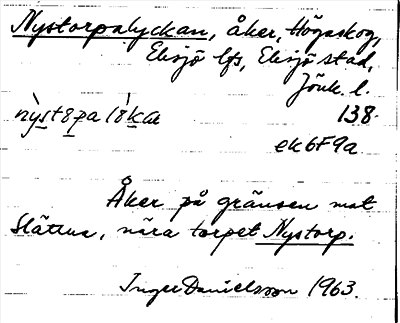 Nystorpalyckan, åker, Högaskog,
Eksjö lfs, Eksjö stad,
Jönk. l.
138.
ek6F9a
Åker på gränsen mot
Slättna, nära torpet Nystorp.
Inger Danielsson 1963.